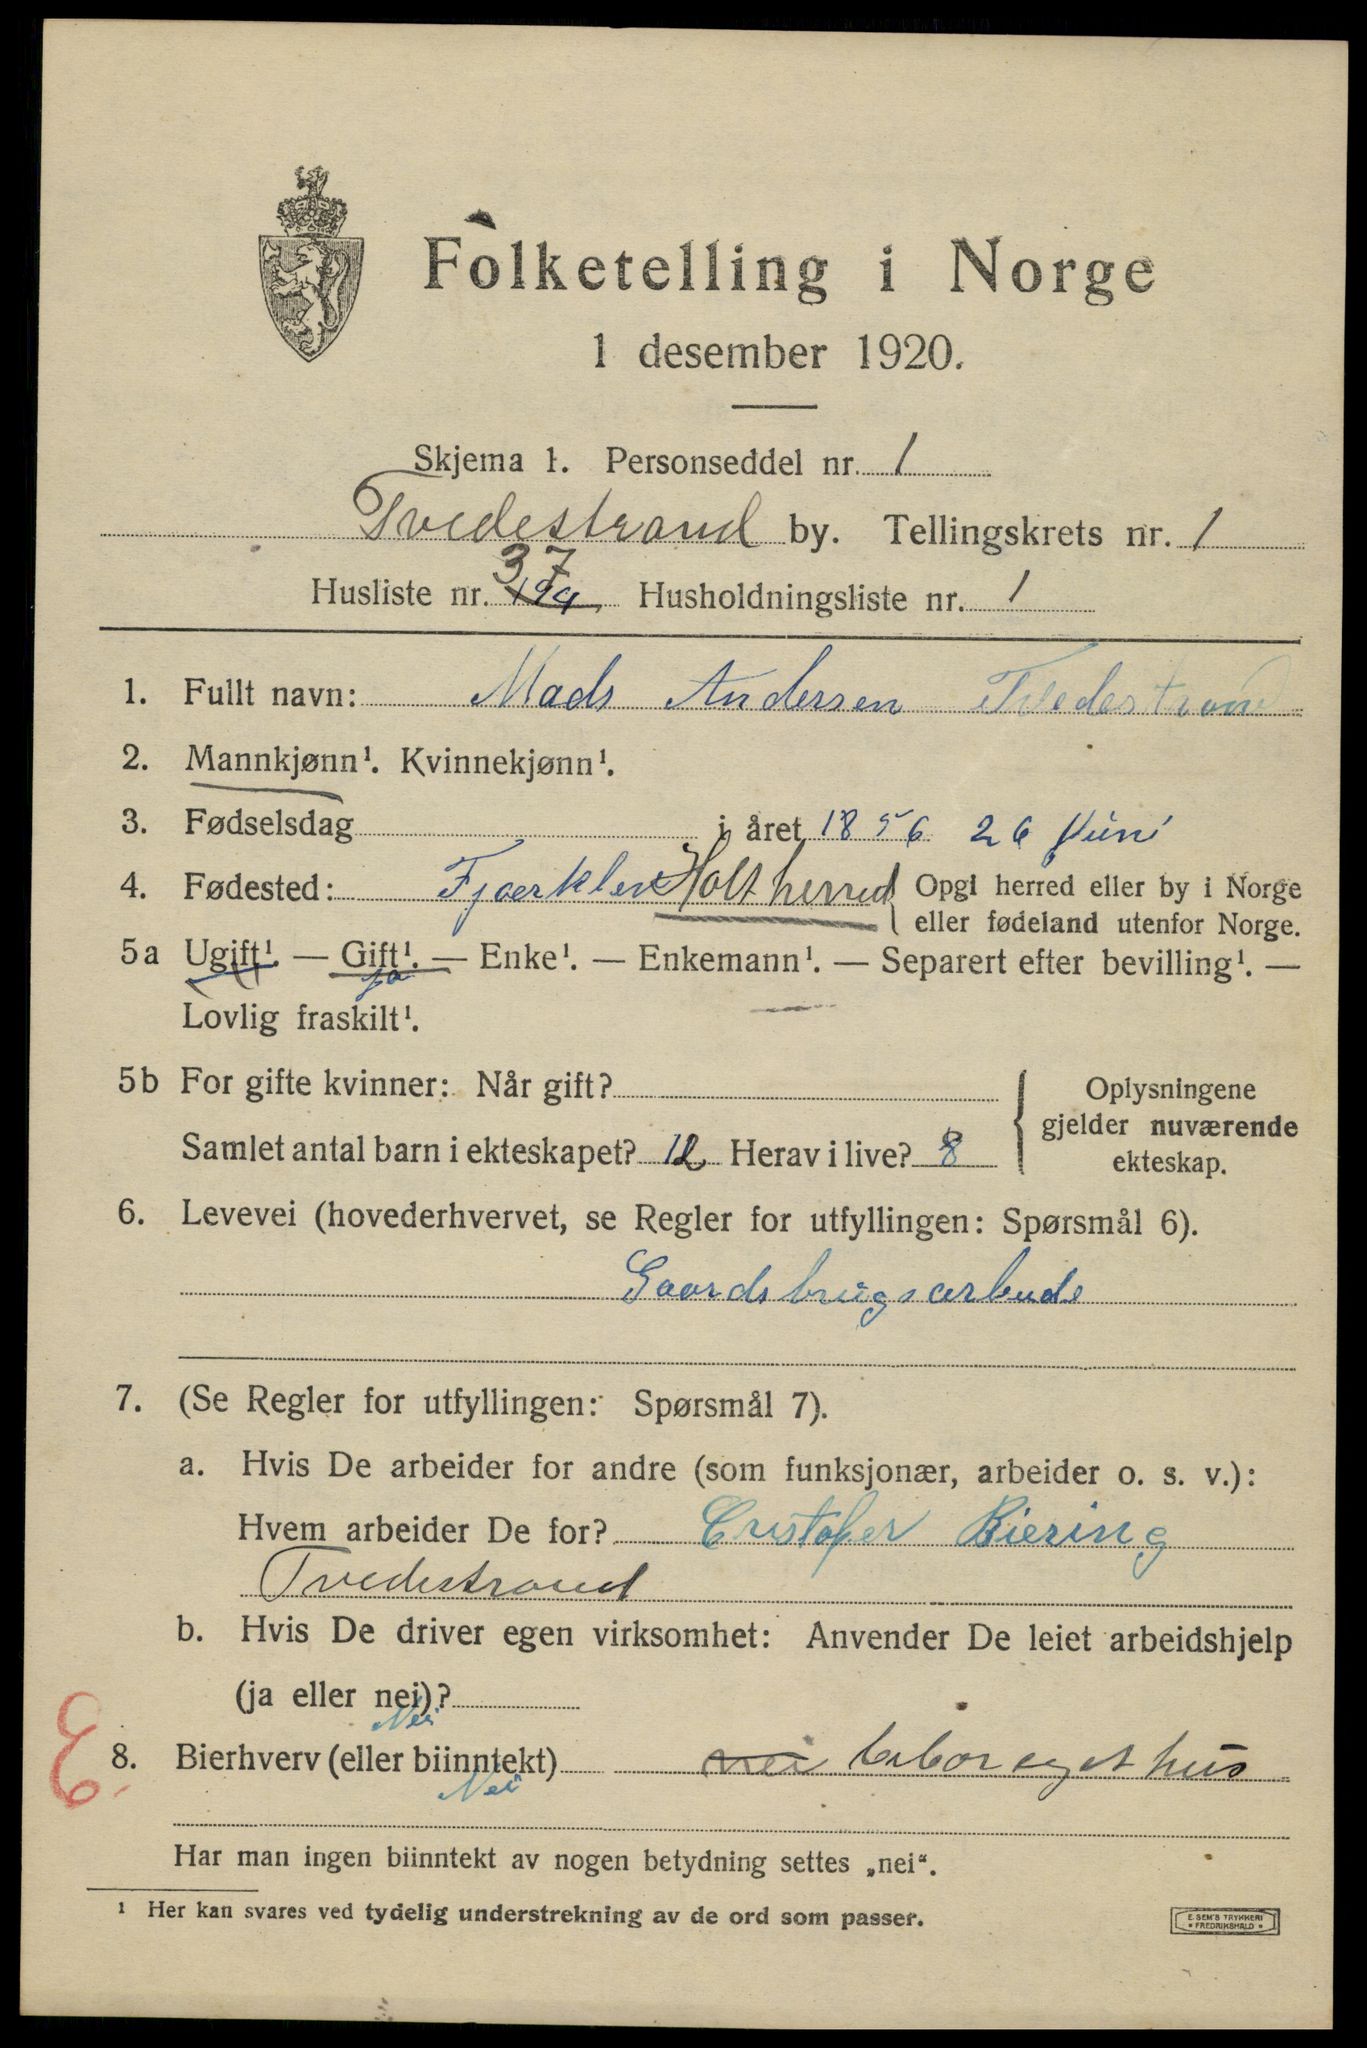 Folketelling i Norge
1 desember 1920.
Skjema 1. Personseddel nr. 1
Tvedestrand by. Tellingskrets nr. 1
37
Husliste nr. 194 Husholdningsliste nr. 1
1. Fullt navn: Mads Andersen Tvedestrand
2. Mannkjønn¹. Kvinnekjønn¹.
3. Fødselsdag i året 1856 26 Juni
4. Fødested: Holt herred { Opgi herred eller by i Norge
eller fødeland utenfor Norge.
5a Ugift¹. — Gift¹. — Enke¹. — Enkemann¹. — Separert efter bevilling¹. —
ja
Lovlig fraskilt¹.
5b For gifte kvinner: Når gift? { Oplysningene
gjelder nuværende
Samlet antal barn i ekteskapet? 12 Herav i live? 8 ekteskap.
6. Levevei (hovederhvervet, se Regler for utfyllingen: Spørsmål 6).
Gaardsbrugsarbeide
7. (Se Regler for utfyllingen: Spørsmål 7).
a. Hvis De arbeider for andre (som funksjonær, arbeider o. s. v.):
Hvem arbeider De for? Cristofer Biering
Tvedestrand
b. Hvis De driver egen virksomhet: Anvender De leiet arbeidshjelp
(ja eller nei)?
Nei
8. Bierhverv (eller biinntekt) nei bebor eget hus
Nei
E.
Har man ingen biinntekt av nogen betydning settes „nei“.
¹ Her kan svares ved tydelig understrekning av de ord som passer.
E. SEM'S TRYKKERI
• FREDRIKSHALD •